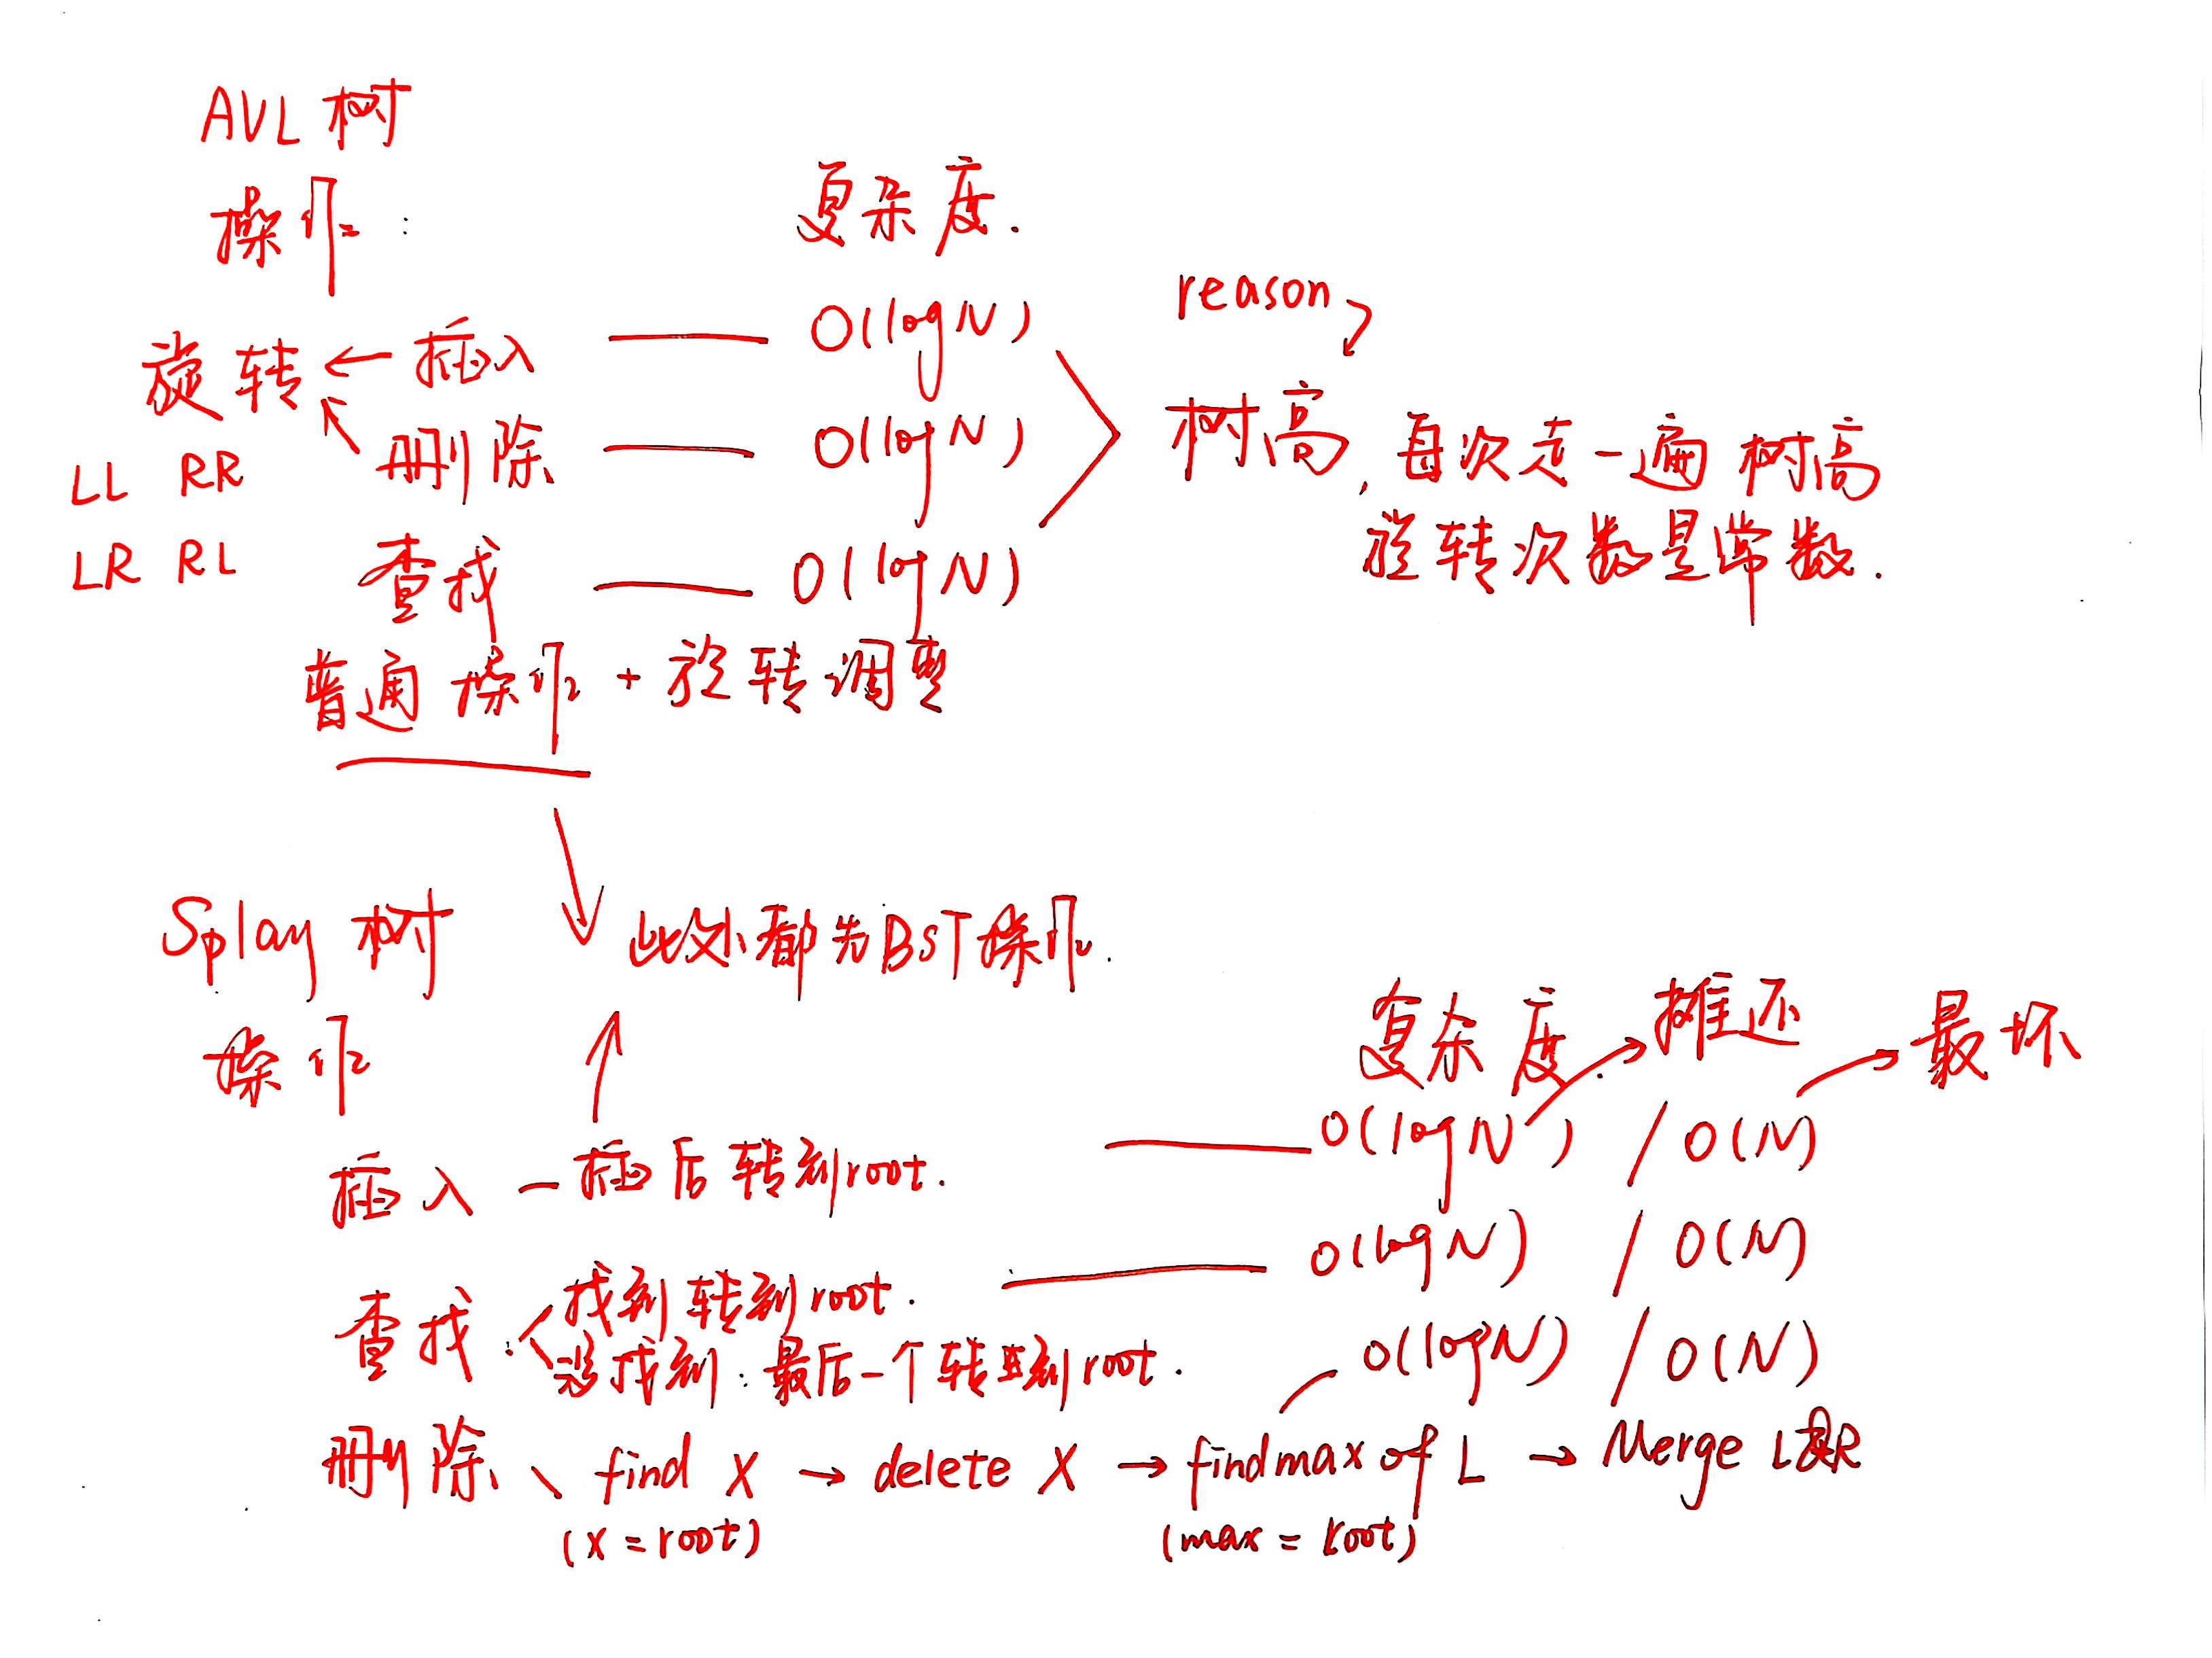 AVL 树
操作:
复杂度.
旋转 ← 插入 —— O(logN)
删除 —— O(logN)
LL RR
LR RL
查找 —— O(logN)
reason
树高, 每次走一遍树高
旋转次数是常数.
普通操作 + 旋转调整
Splay 树
此外都先BST操作.
操作
复杂度. → 摊还 → 最坏
插入 - 插后转到root. —— O(logN) / O(N)
查找: 找到转到root. —— O(logN) / O(N)
找到: 最后一个转到root. O(logN) / O(N)
删除、find X → delete X → findmax of L → Merge L&R
(X = root) (max = root)